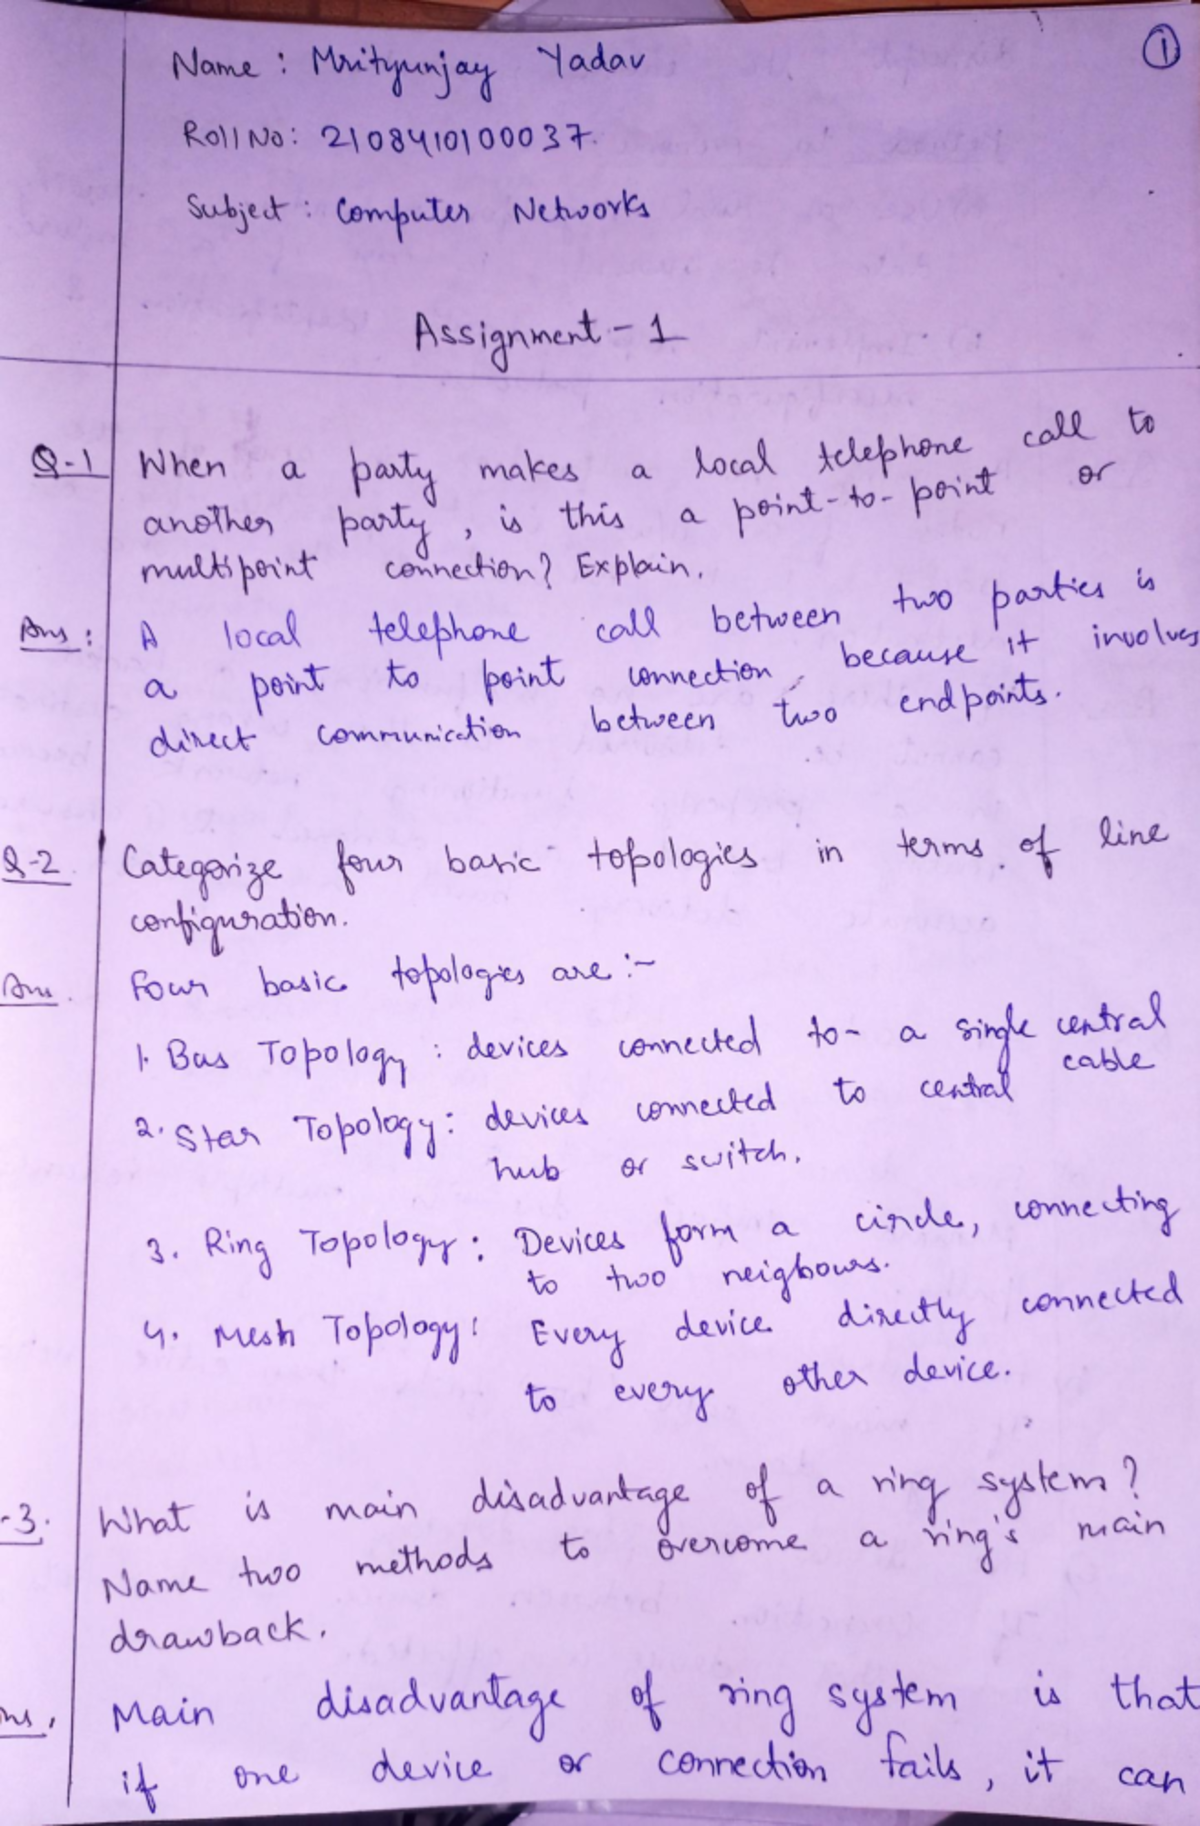 1
Name : Mrityunjay Yadav
Roll No: 2108410100037.
Subject : Computer Networks
Assignment - 1
Q-1 When a party makes a local telephone call to
another party, is this a point-to-point or
multipoint connection? Explain.
Ans: A local telephone call between two parties is
a point to point connection because it involves
direct communication between two endpoints.
Q-2 Categorize four basic topologies in terms of line
configuration.
Ans Four basic topologies are :-
1. Bus Topology : devices connected to a single central
cable
2. Star Topology: devices connected to central
hub or switch.
3. Ring Topology: Devices form a circle, connecting
to two neigbours.
4. Mesh Topology: Every device directly connected
to every other device.
-3. What is main disadvantage of a ring system?
Name two methods to overcome a ring's main
drawback.
ns. Main disadvantage of ring system is that
if one device or connection fails, it can